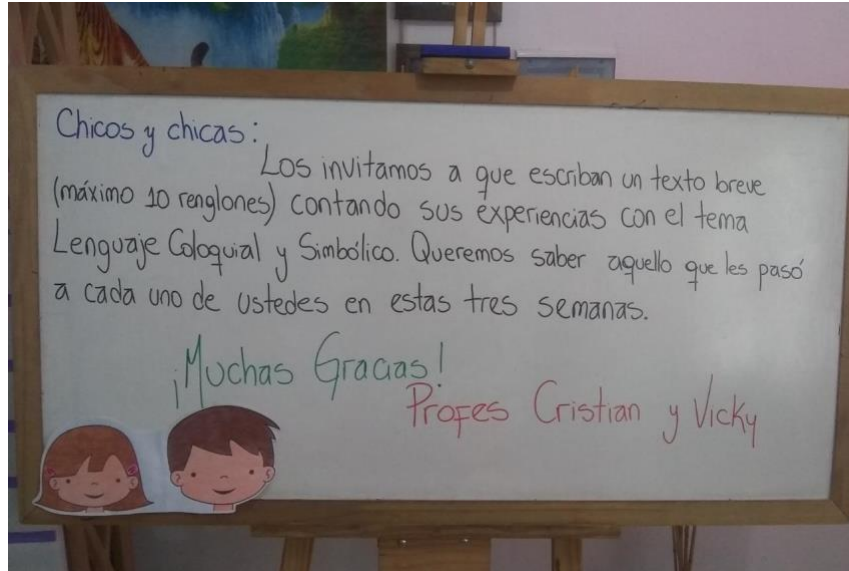 Chicos y chicas:
Los invitamos a que escriban un texto breve
(máximo 10 renglones) contando sus experiencias con el tema
Lenguaje Coloquial y Simbólico. Queremos saber aquello que les pasó
a cada uno de ustedes en estas tres semanas.
¡Muchas Gracias!
Profes Cristian y Vicky